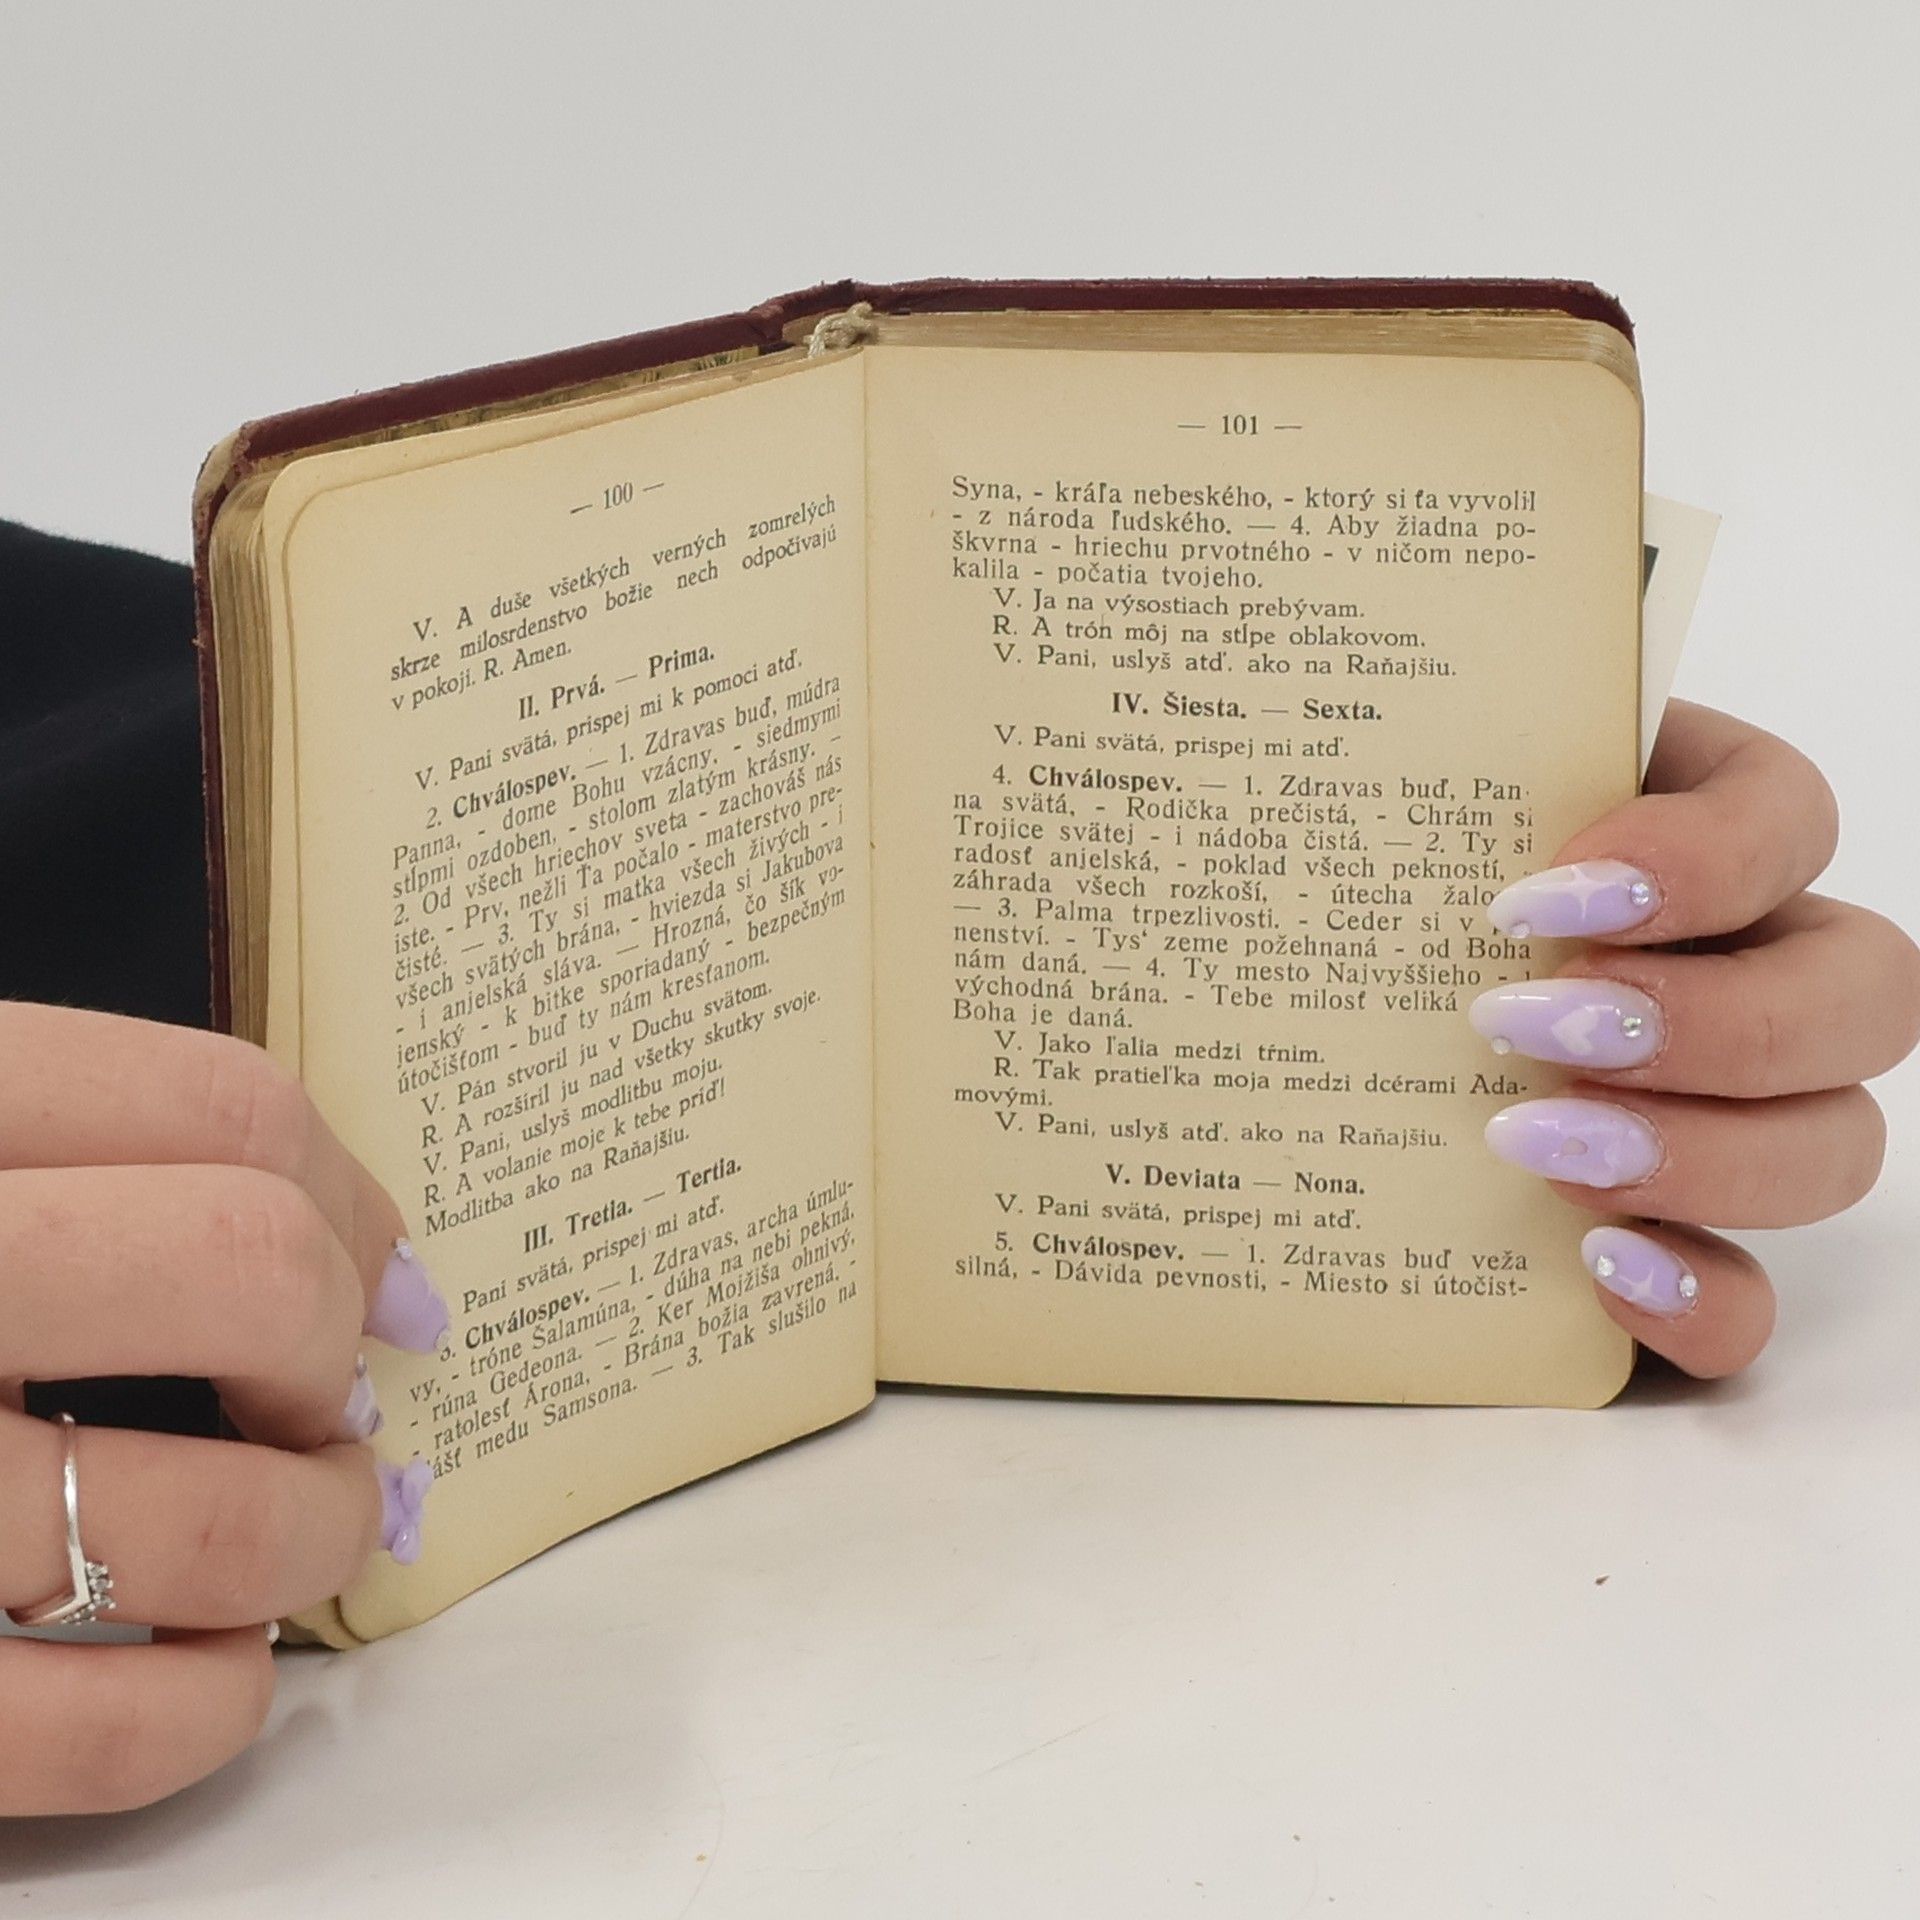 — 100 —
V. A duše všetkých verných zomrelých
skrze milosrdenstvo božie nech odpočívajú
v pokoji. R. Amen.
II. Prvá. — Prima.
V. Pani svätá, prispej mi k pomoci atď.
2. Chválospev. — 1. Zdravas buď, múdra
Panna, - dome Bohu vzácny, - siedmymi
stĺpmi ozdoben, - stolom zlatým krásny. -
2. Od všech hriechov sveta - zachováš nás
iste. - Prv, nežli Ťa počalo - materstvo pre-
čisté. — 3. Ty si matka všech živých - i
všech svätých brána, - hviezda si Jakubova
- i anjelská sláva. — Hrozná, čo šík vo-
jenský - k bitke sporiadaný - bezpečným
útočišťom - buď ty nám kresťanom.
V. Pán stvoril ju v Duchu svätom.
R. A rozšíril ju nad všetky skutky svoje.
V. Pani, uslyš modlitbu moju.
R. A volanie moje k tebe príď!
Modlitba ako na Raňajšiu.
III. Tretia. — Tertia.
Pani svätá, prispej mi atď.
3. Chválospev. — 1. Zdravas, archa úmlu-
vy, - tróne Šalamúna, - dúha na nebi pekná,
- rúna Gedeona. — 2. Ker Mojžiša ohnivý,
- ratolesť Árona, - Brána božia zavrená. -
medu Samsona. — 3. Tak slušilo na
— 101 —
Syna, - kráľa nebeského, - ktorý si ťa vyvolil
- z národa ľudského. — 4. Aby žiadna po-
škvrna - hriechu prvotného - v ničom nepo-
kalila - počatia tvojeho.
V. Ja na výsostiach prebývam.
R. A trón môj na stĺpe oblakovom.
V. Pani, uslyš atď. ako na Raňajšiu.
IV. Šiesta. — Sexta.
V. Pani svätá, prispej mi atď.
4. Chválospev. — 1. Zdravas buď, Pan-
na svätá, - Rodička prečistá, - Chrám si
Trojice svätej - i nádoba čistá. — 2. Ty si
radosť anjelská, - poklad všech pekností, -
záhrada všech rozkoší, - útecha
— 3. Palma trpezlivosti. - Ceder si v
nenství. - Tys‘ zeme požehnaná - od Boha
nám daná. — 4. Ty mesto Najvyššieho -
východná brána. - Tebe milosť veliká
Boha je daná.
V. Jako ľalia medzi tŕnim.
R. Tak pratieľka moja medzi dcérami Ada-
movými.
V. Pani, uslyš atď. ako na Raňajšiu.
V. Deviata — Nona.
V. Pani svätá, prispej mi atď.
5. Chválospev. — 1. Zdravas buď veža
silná, - Dávida pevnosti, - Miesto si útočist-